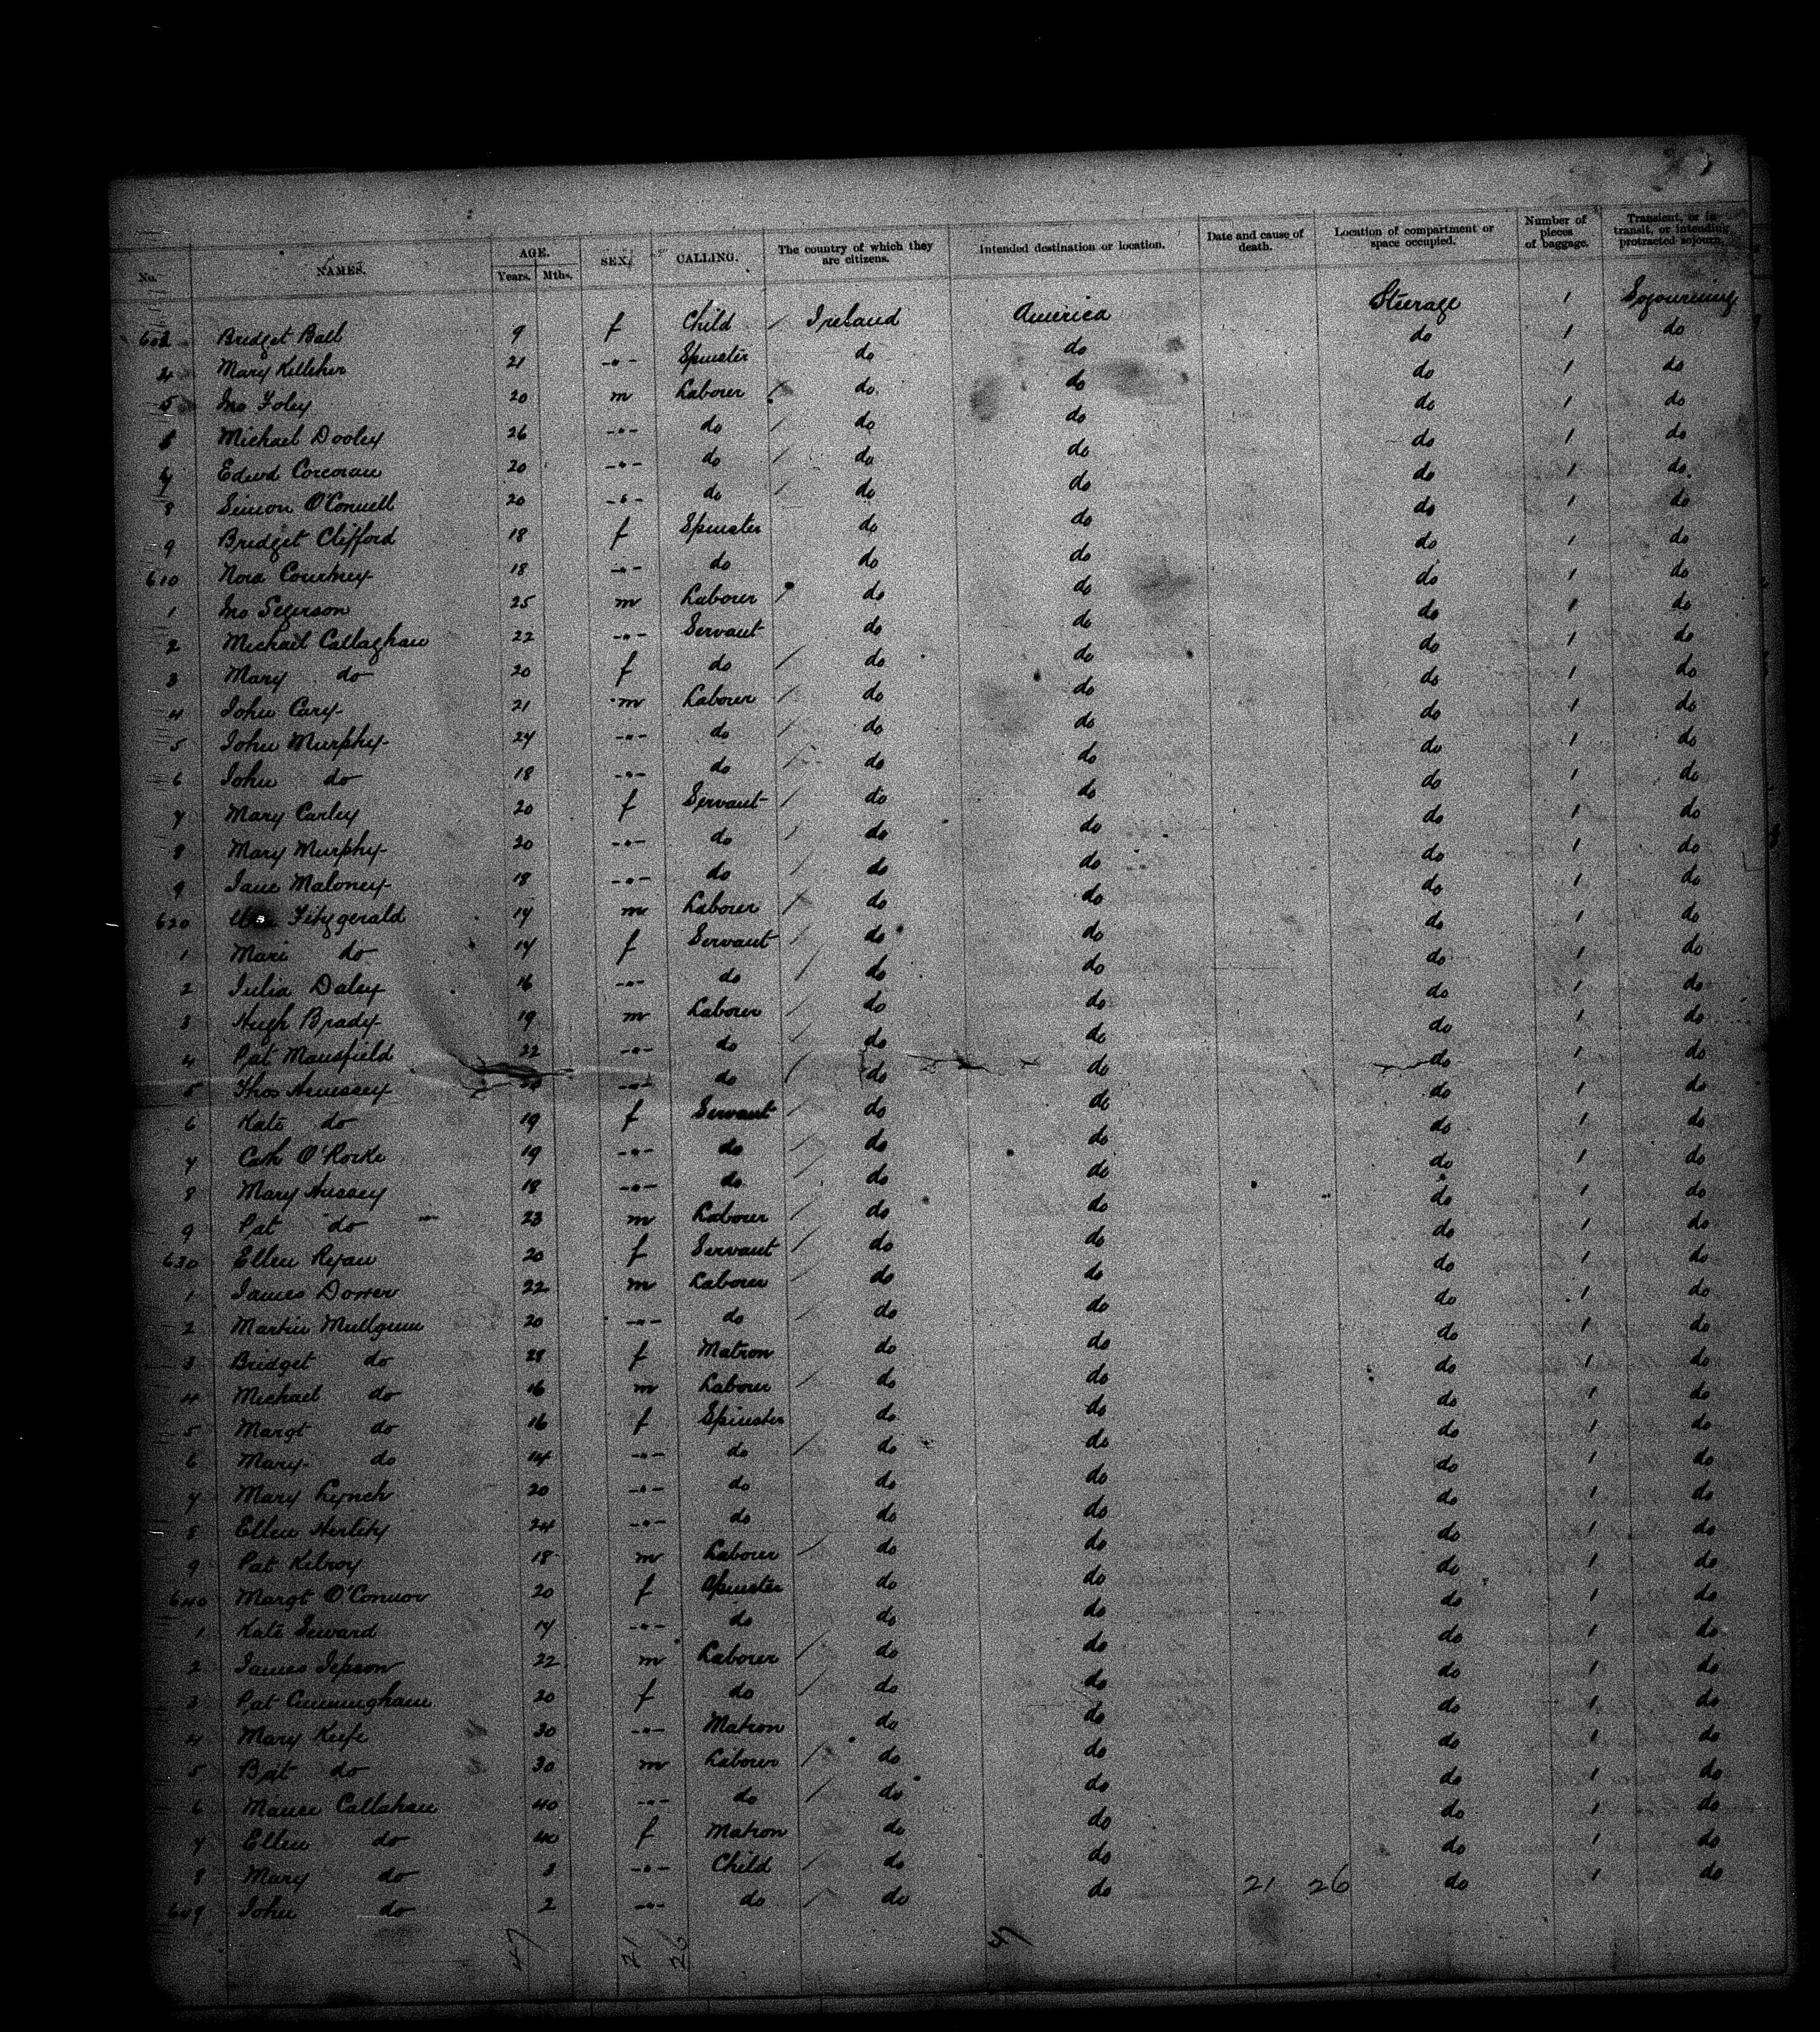 No. NAMES. AGE. Years. Mths. SEX. CALLING. The country of which they are citizens. Intended destination or location. Date and cause of death. Location of compartment or space occupied. Number of pieces of baggage. Transient, or in transit, or intending protracted sojourn.
Bridget Ball 9 f Child Ireland America Steerage 1 Sojourning
4 Mary Kelleher 21 -"- Spinster do do do 1 do
5 Jno Foley 20 m Laborer do do do 1 do
Michael Dooley 26 -"- do do do do 1 do
7 Edwd Corcoran 20 -"- do do do do 1 do
8 Simon O'Connell 20 -"- do do do do 1 do
9 Bridget Clifford 18 f Spinster do do do 1 do
610 Nora Courtney 18 -"- do do do do 1 do
1 Jno Segerson 25 m Laborer do do do 1 do
2 Michael Callaghan 22 -"- Servant do do do 1 do
3 Mary do 20 f do do do do 1 do
4 John Cary 21 m Laborer do do do 1 do
5 John Murphy 24 -"- do do do do 1 do
6 John do 18 -"- do do do do 1 do
7 Mary Carley 20 f Servant do do do 1 do
8 Mary Murphy 20 -"- do do do do 1 do
9 Jane Maloney 18 -"- do do do do 1 do
620 Fitzgerald 17 m Laborer do do do 1 do
1 Mari do 17 f Servant do do do 1 do
2 Julia Daley 16 -"- do do do do 1 do
3 Hugh Brady 19 m Laborer do do do 1 do
4 Pat Mansfield 22 -"- do do do do 1 do
5 Thos -"- do do do do 1 do
6 Kate do 19 f Servant do do do 1 do
7 Cath O'Rorke 19 -"- do do do do 1 do
8 Mary Hussey 18 -"- do do do do 1 do
9 Pat do 23 m Laborer do do do 1 do
630 Ellen Ryan 20 f Servant do do do 1 do
1 James Dorrer 22 m Laborer do do do 1 do
2 Martin Mullguin 20 -"- do do do do 1 do
3 Bridget do 28 f Matron do do do 1 do
4 Michael do 16 m Laborer do do do 1 do
5 Margt do 16 f Spinster do do do 1 do
6 Mary do 14 -"- do do do do 1 do
7 Mary Lynch 20 -"- do do do do 1 do
8 Ellen Herlihy 24 -"- do do do do 1 do
9 Pat Kilroy 18 m Laborer do do do 1 do
640 Margt O'Connor 20 f Spinster do do do 1 do
1 Kate Seward 17 -"- do do do do 1 do
2 James Jepson 22 m Laborer do do do 1 do
3 Pat Cunningham 20 f do do do do 1 do
4 Mary Keefe 30 -"- Matron do do do 1 do
5 Bat do 30 m Laborer do do do 1 do
6 Callahan 40 -"- do do do do 1 do
7 Ellen do 40 f Matron do do do 1 do
8 Mary do 3 -"- Child do do do 1 do
649 John do 2 -"- do do do 21 26 do 1 do
47 21 26 47